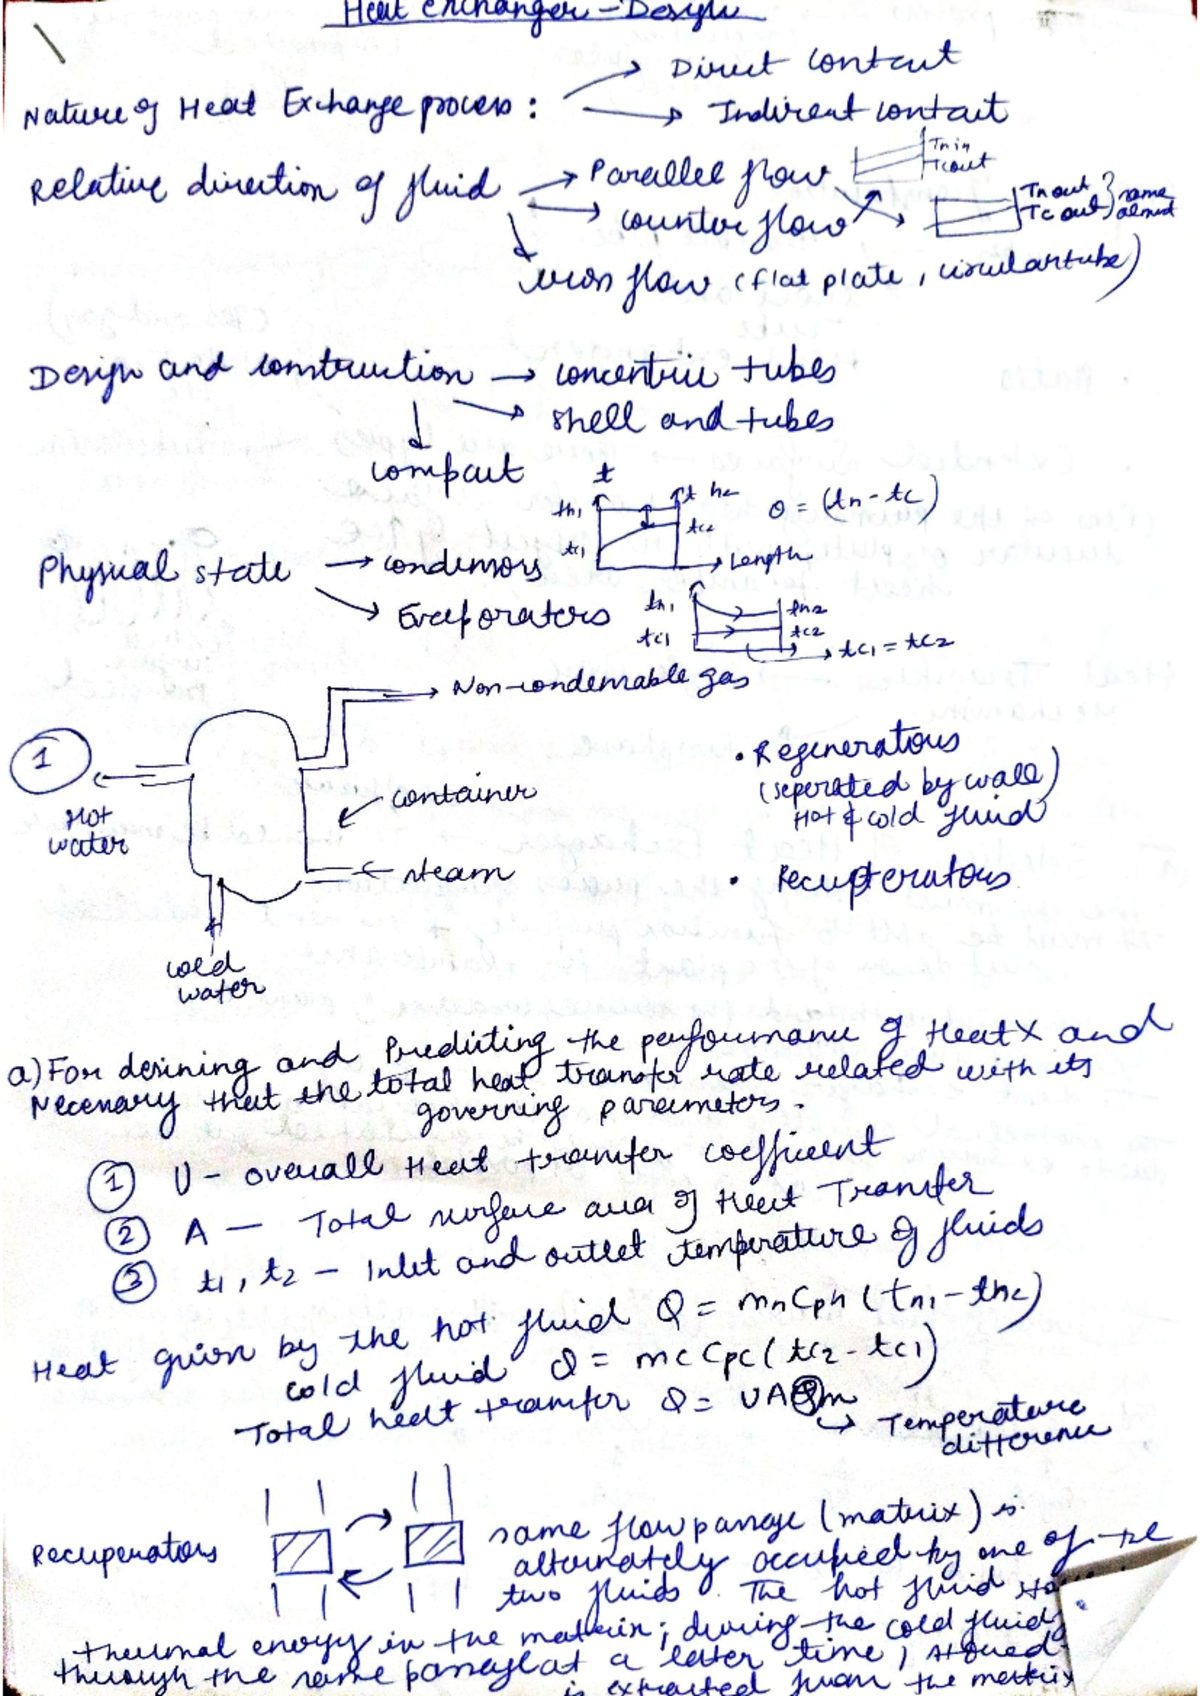 Heat Exchanger - Design
Nature of Heat Exchange process : → Direct contact
→ Indirect contact
Relative direction of fluid → Parallel flow
Th in
Tc out
→ counter flow
Th out
Tc out } same almost
cross flow (flat plate, circular tube)
Design and construction → concentric tubes
→ shell and tubes
compact
t
th1
tc1
t h2
tc2
→ Length
θ = (th - tc)
Physical state → condensors
→ Evaporators
th1
tc1
th2
tc2
→ tc1 = tc2
→ Non-condensable gas
1
Hot water
container
steam
cold water
• Regenerators
(seperated by wall)
Hot & cold fluid
• Recuperators
a) For desining and Predicting the performance of Heat X and
Necessary that the total heat transfer rate related with its
governing parameters.
① U - overall Heat transfer coefficient
② A - Total surface area of Heat Transfer
③ t1, t2 - Inlet and outlet temperature of fluids
Heat given by the hot fluid Q = mh Cph (th1 - th2)
cold fluid Q = mc Cpc (tc2 - tc1)
Total heat transfer Q = UAθm
→ Temperature difference
Recuperators
same flow passage (matrix) is
alternately occupied by one of the
two fluids. The hot fluid
thermal energy in the matrix; during the cold fluid
through the same passage at a later time, stored
is extracted from the matrix